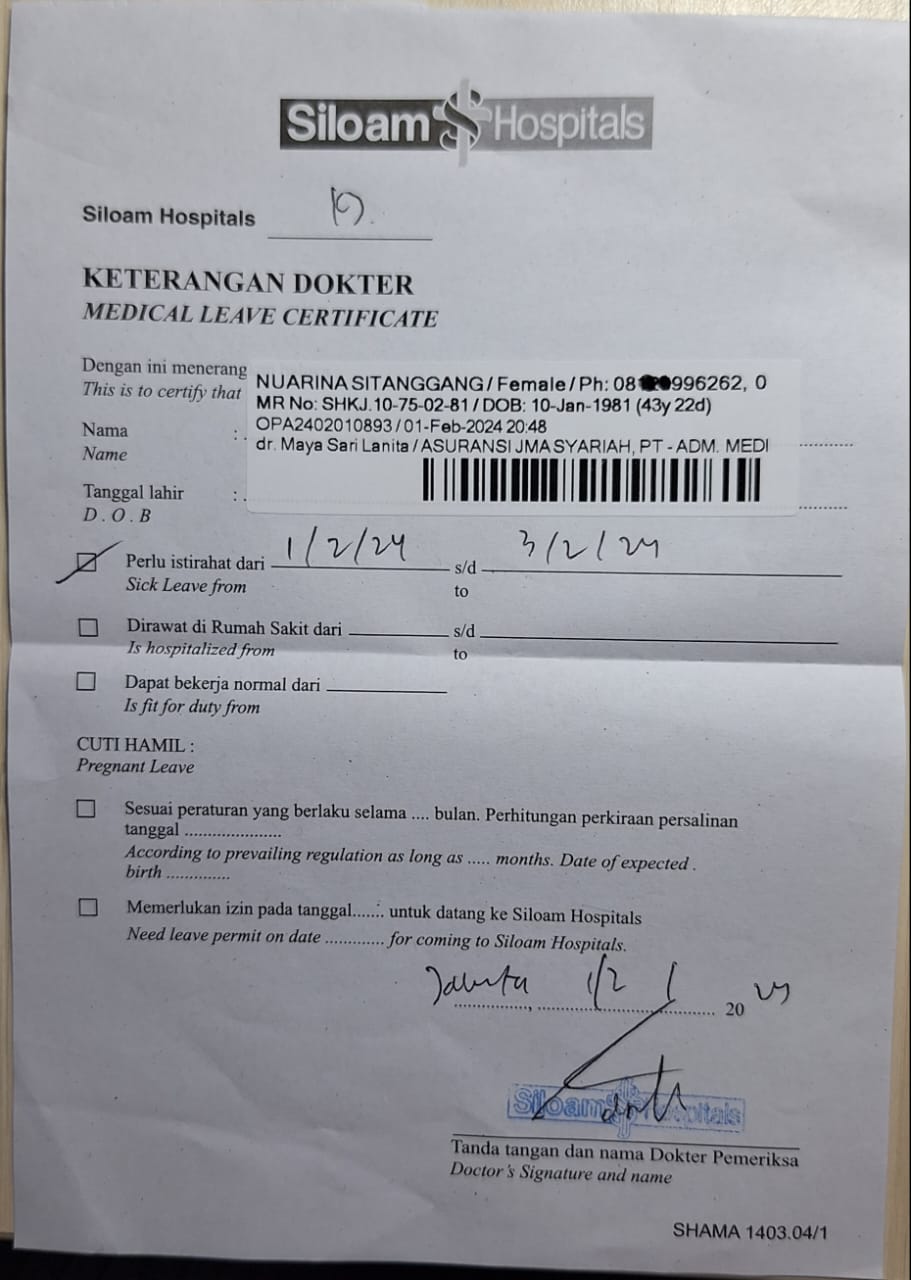 Siloam Hospitals
Siloam Hospitals
KETERANGAN DOKTER
MEDICAL LEAVE CERTIFICATE
Dengan ini menerang
This is to certify that
NUARINA SITANGGANG / Female / Ph: 08 996262, 0
MR No: SHKJ.10-75-02-81 / DOB: 10-Jan-1981 (43y 22d)
OPA2402010893 / 01-Feb-2024 20:48
dr. Maya Sari Lanita / ASURANSI JMA SYARIAH, PT - ADM. MEDI
Nama :
Name
Tanggal lahir :
D . O . B
Perlu istirahat dari 1/2/24 s/d 3/2/24
Sick Leave from to
Dirawat di Rumah Sakit dari s/d
Is hospitalized from to
Dapat bekerja normal dari
Is fit for duty from
CUTI HAMIL :
Pregnant Leave
Sesuai peraturan yang berlaku selama .... bulan. Perhitungan perkiraan persalinan
tanggal ......................
According to prevailing regulation as long as ..... months. Date of expected .
birth ..............
Memerlukan izin pada tanggal....... untuk datang ke Siloam Hospitals
Need leave permit on date ............. for coming to Siloam Hospitals.
Jakarta 1/2 / 20 24
Siloam Hospitals
Tanda tangan dan nama Dokter Pemeriksa
Doctor's Signature and name
SHAMA 1403.04/1